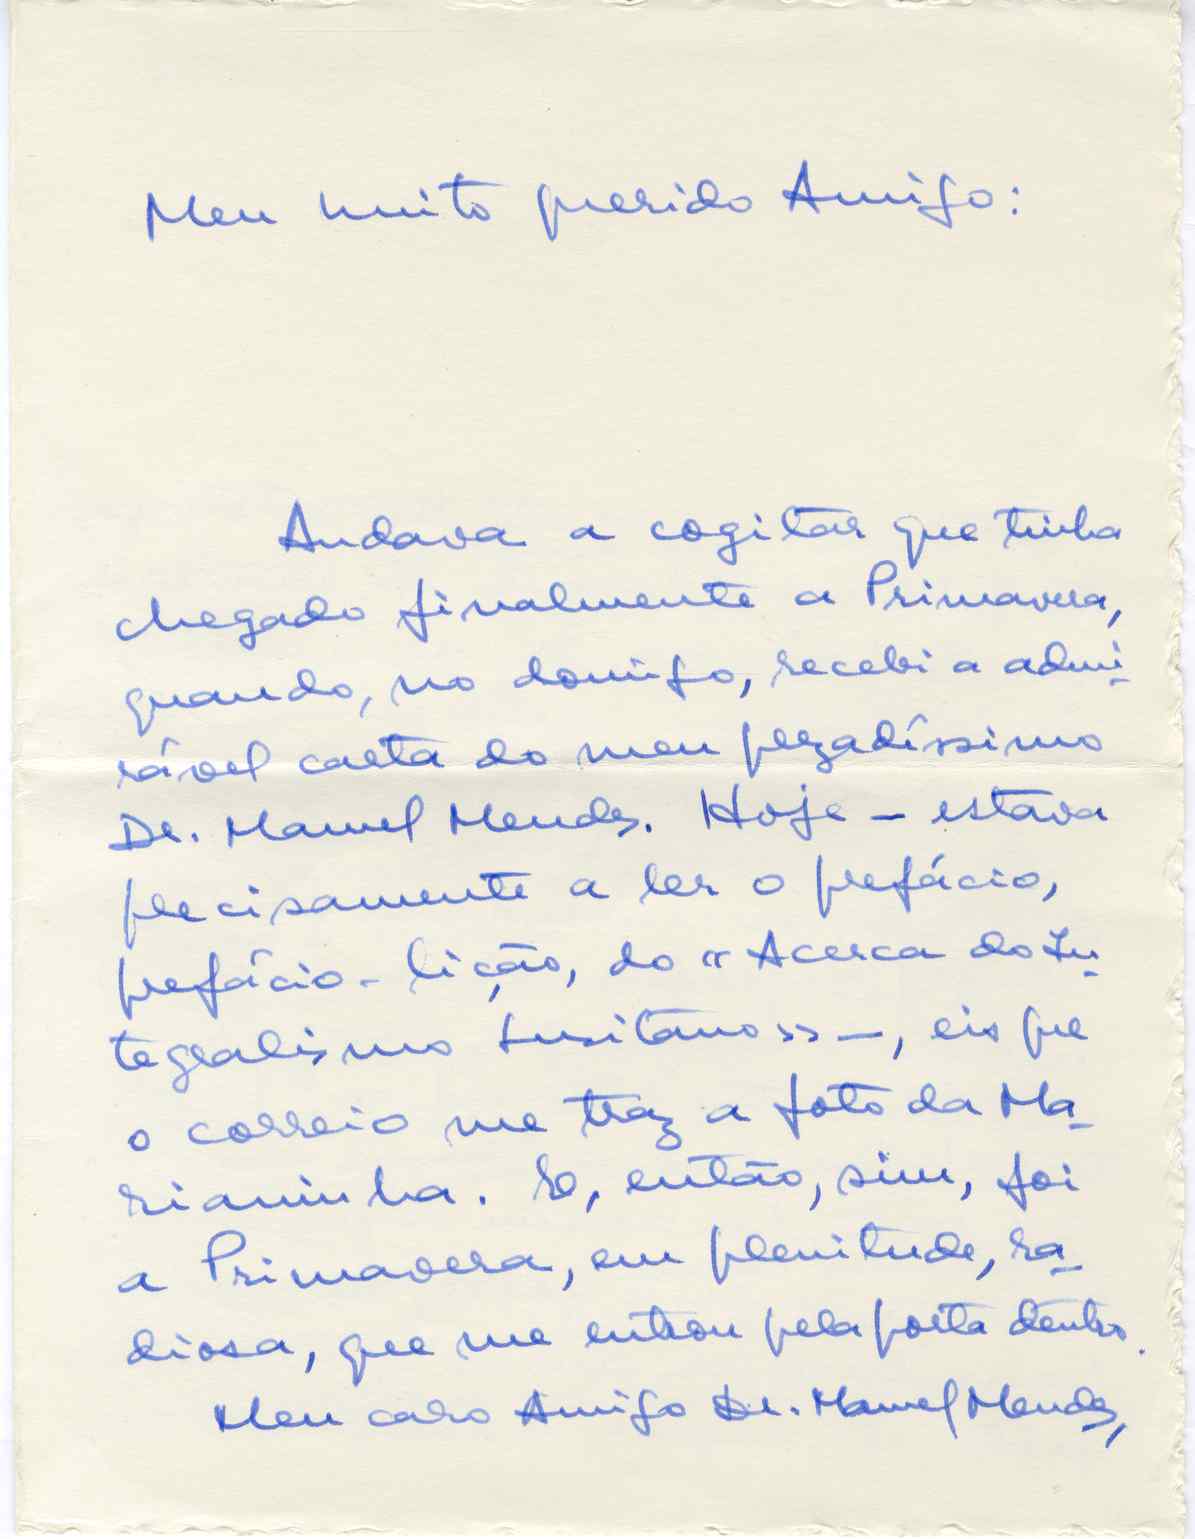 Meu muito querido Amigo:
Andava a cogitar que tinha
chegado finalmente a Primavera,
quando, no domigo, recebi a admi-
rável carta do meu prezadíssimo
Dr. Manuel Mendes. Hoje – estava
precisamente a ler o prefácio,
prefácio-lição, do «Acerca do In-
tegralismo Lusitano» –, eis que
o correio me traz a foto da Ma-
rianinha. E, então, sim, foi
a Primavera, em plenitude, ra-
diosa, que me entrou pela porta dentro.
Meu caro Amigo Dr. Manuel Mendes,